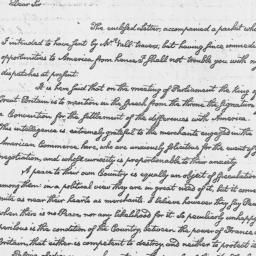 Dear Sir
The enclosed Letter, accompanied a packet wh
I intended to have sent by Mr. Vall travers, but having since immedi
opportunities to America from hence I shall not trouble you with m
dispatches at present.
It is here said that on the meeting of Parliament the king of
Great Britain is to mention in the speech from the throne, the signature o
a Convention for the settlement of the differences with America.
This intelligence is extremely grateful to the merchants engaged in the
American Commerce here, who are anxiously solicitous for the event of y
negotiation, and whose curiosity is proportionable to their anxiety.
A peace to their own Country is equally an object of speculation
among them: in a political view they are in great need of it, but it come
quite as near their hearts as merchants. I believe however they say Peac
when there is no Peace, nor any likelihood for it. So peculiarly unhapp
pervious is the condition of the Country, between the power of France a
Britain, that either is competent to destroy, and neither to protect it